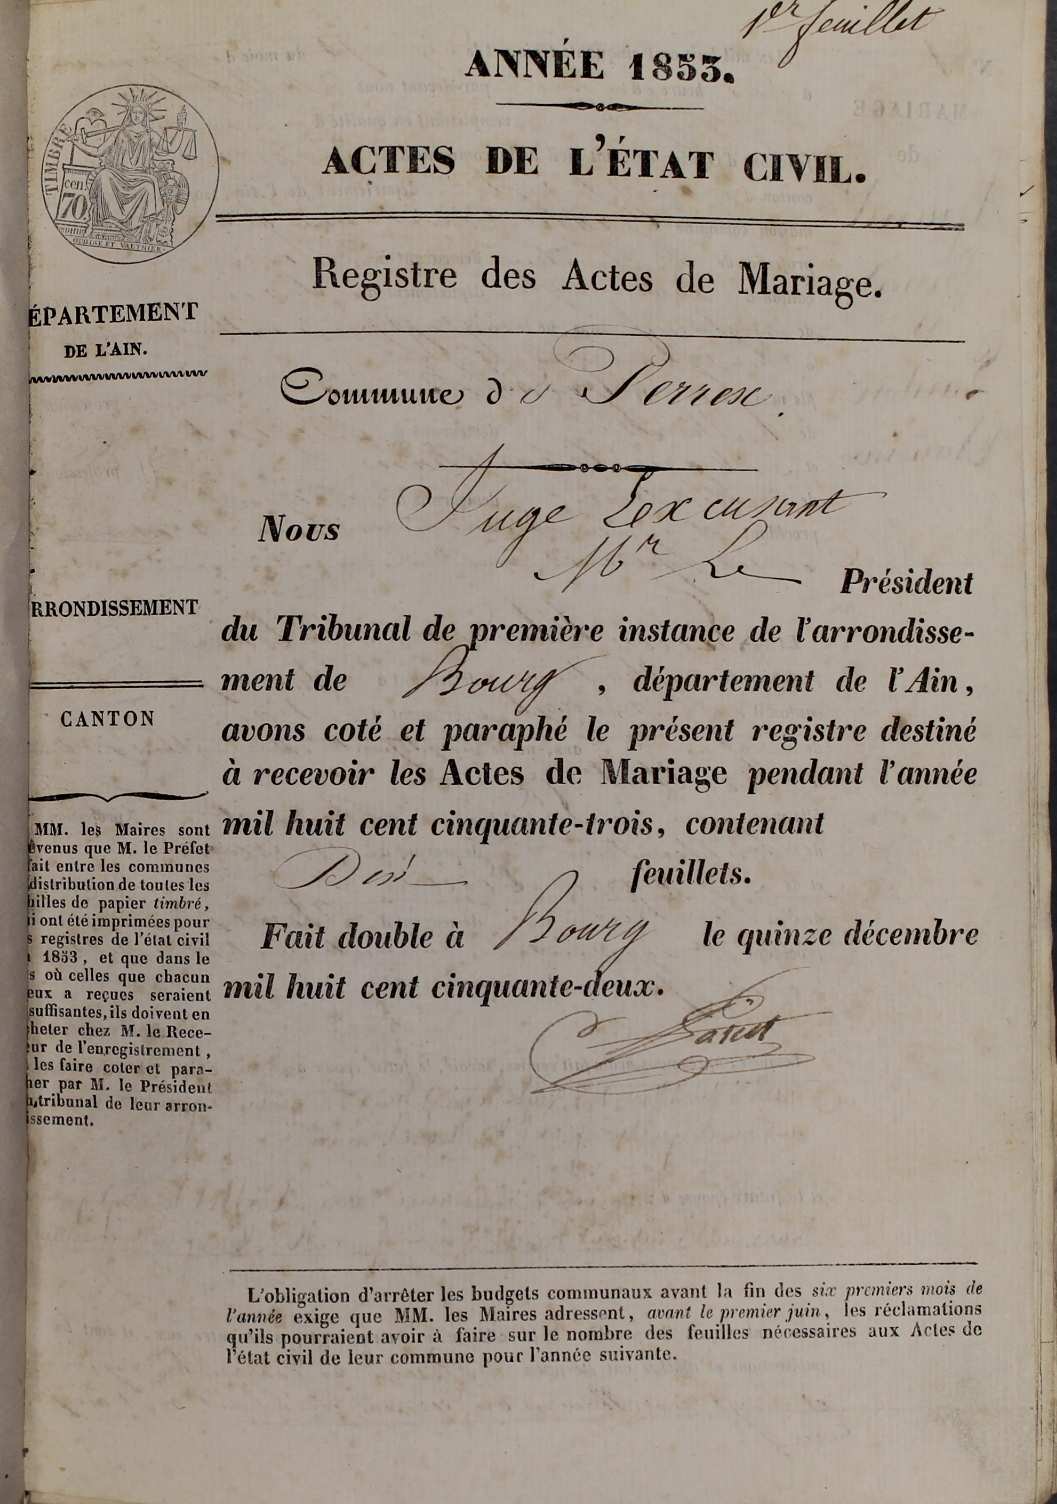 1er feuillet
ANNÉE 1853.
ACTES DE L'ÉTAT CIVIL.
TIMBRE
cen.
70
Registre des Actes de Mariage.
ÉPARTEMENT
DE L'AIN.
Commune de Perrex.
RRONDISSEMENT
CANTON
MM. les Maires sont
évenus que M. le Préfet
fait entre les communes
distribution de toutes les
uilles de papier timbré,
i ont été imprimées pour
s registres de l'état civil
1853, et que dans le
s où celles que chacun
eux a reçues seraient
suffisantes, ils doivent en
heter chez M. le Rece-
eur de l'enregistrement,
les faire coter et para-
her par M. le Président
tribunal de leur arron-
issement.
Nous Juge Lexcusant
Mr Le Président
du Tribunal de première instance de l'arrondisse-
ment de Bourg, département de l'Ain,
avons coté et paraphé le présent registre destiné
à recevoir les Actes de Mariage pendant l'année
mil huit cent cinquante-trois, contenant
Dix feuillets.
Fait double à Bourg le quinze décembre
mil huit cent cinquante-deux.
L'obligation d'arrêter les budgets communaux avant la fin des six premiers mois de
l'année exige que MM. les Maires adressent, avant le premier juin, les réclamations
qu'ils pourraient avoir à faire sur le nombre des feuilles nécessaires aux Actes de
l'état civil de leur commune pour l'année suivante.